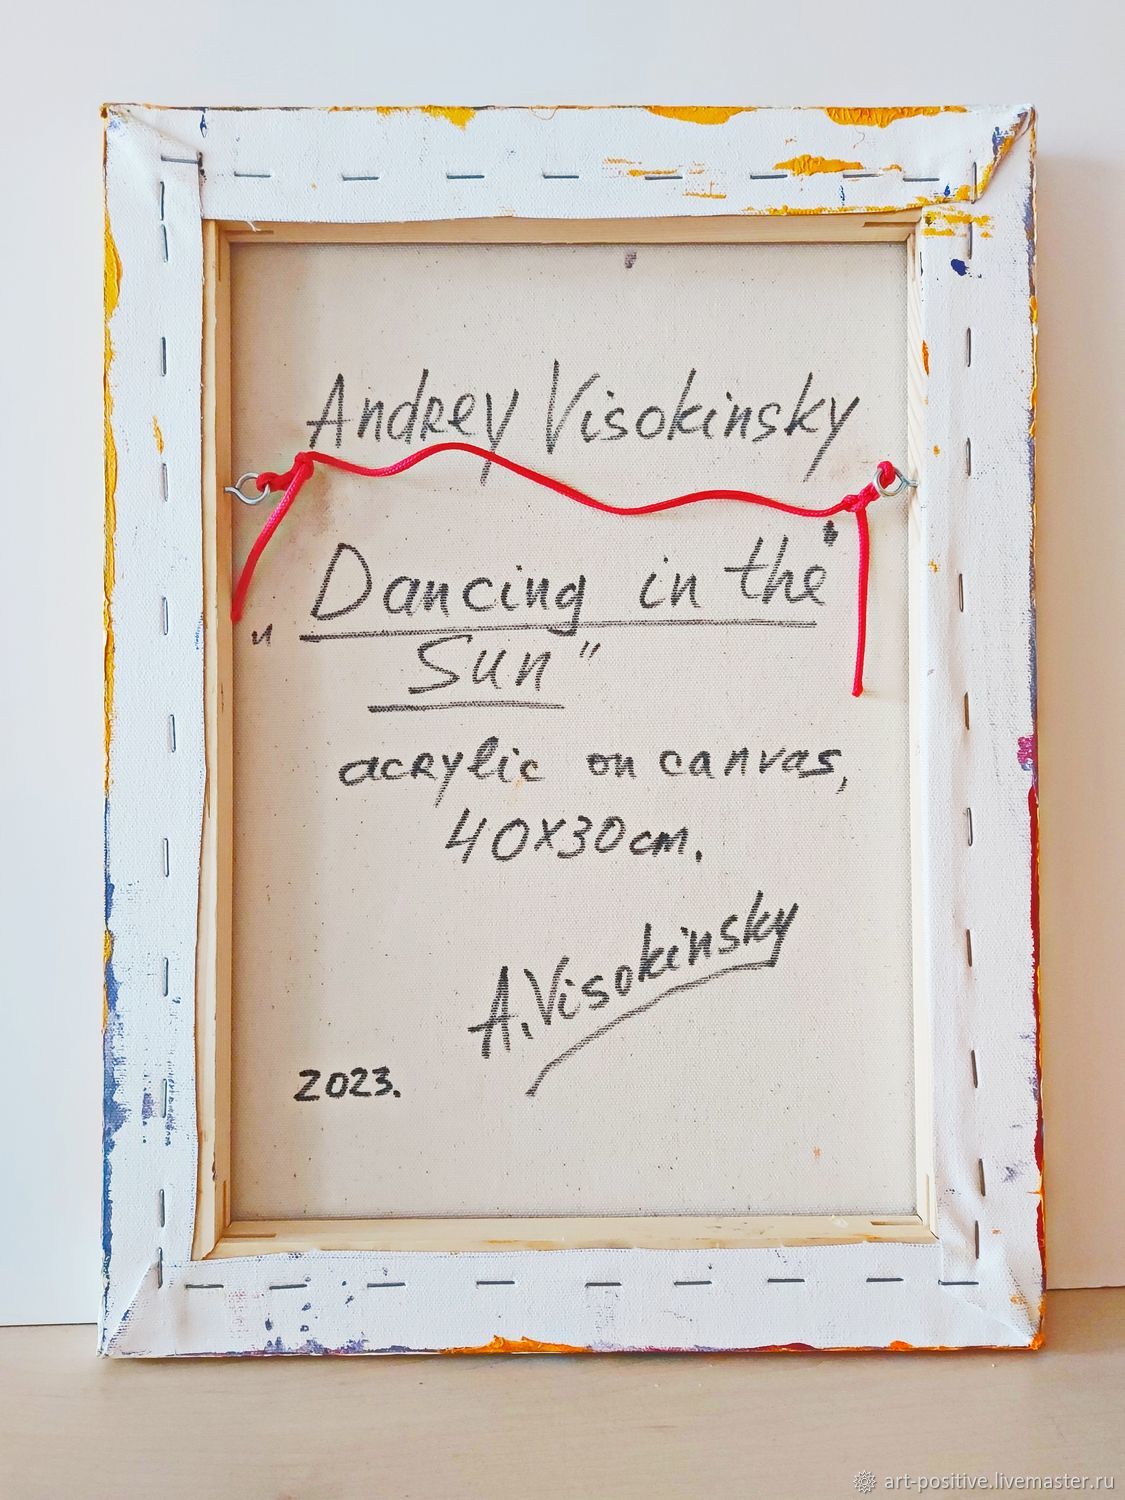 Andrey Visokinsky
"Dancing in the
Sun"
acrylic on canvas,
40x30cm.
A.Visokinsky
2023.
art-positive.livemaster.ru